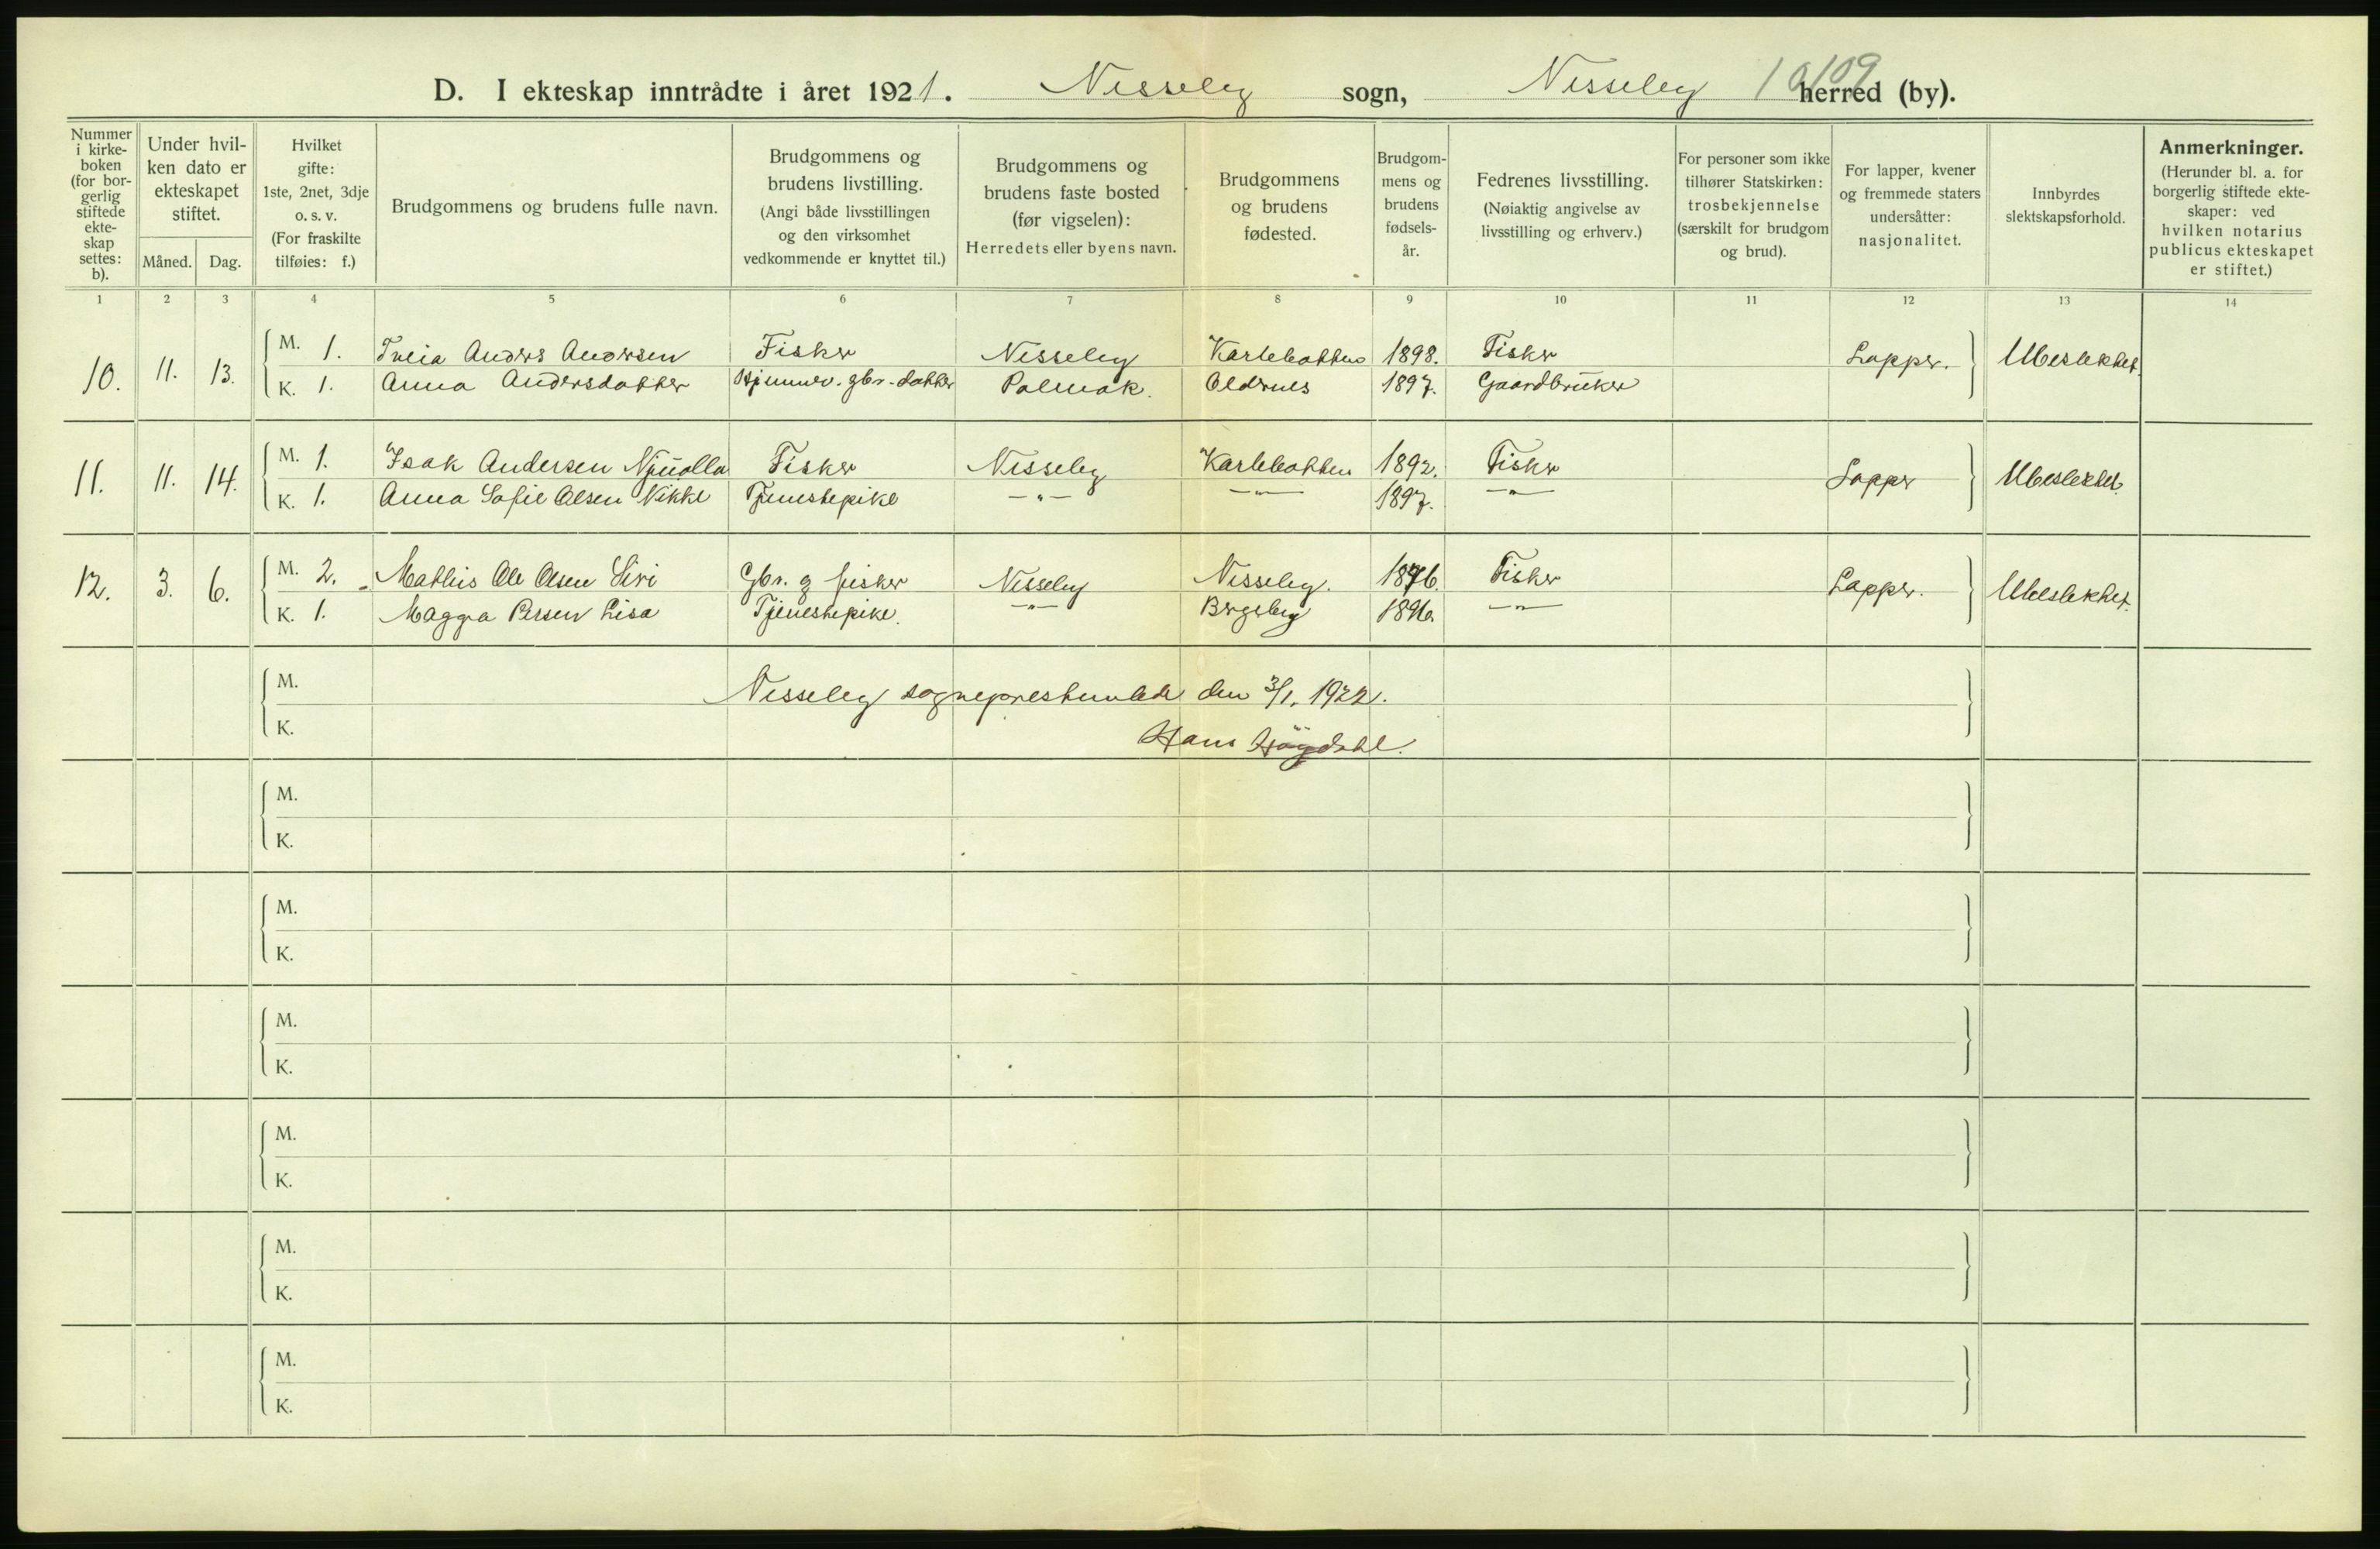 D. I ekteskap inntrådte i året 1921. Nesseby sogn, Nesseby herred (by).
10109
Nummer i kirke-boken (for bor-gerlig stiftede ekte-skap settes: b).
Under hvil-ken dato er ekteskapet stiftet.
Måned. Dag.
Hvilket gifte: 1ste, 2net, 3dje o. s. v. (For fraskilte tilføies: f.)
Brudgommens og brudens fulle navn.
Brudgommens og brudens livstilling. (Angi både livsstillingen og den virksomhet vedkommende er knyttet til.)
Brudgommens og brudens faste bosted (før vigselen): Herredets eller byens navn.
Brudgommens og brudens fødested.
Brudgom-mens og brudens fødsels-år.
Fedrenes livsstilling. (Nøiaktig angivelse av livsstilling og erhverv.)
For personer som ikke tilhører Statskirken: trosbekjennelse (særskilt for brudgom og brud).
For lapper, kvener og fremmede staters undersåtter: nasjonalitet.
Innbyrdes slektskapsforhold.
Anmerkninger. (Herunder bl. a. for borgerlig stiftede ekte-skaper: ved hvilken notarius publicus ekteskapet er stiftet.)
1 2 3 4 5 6 7 8 9 10 11 12 13 14
10. 11. 13. M. 1. Anders Andersen Fisker Nesseby Karlebotten 1898. Fisker Lapper. Ubeslektet.
K. 1. Anna Andersdatter Hjemmev. gbr. datter Polmak. Oldernes 1897. Gaardbruker
11. 11. 14. M. 1. Isak Andersen Njuolla Fisker Nesseby Karlebotten 1892. Fisker Lapper Ubeslektet.
K. 1. Anna Sofie Olsen Nikke Tjenestepike —"— —"— 1897. —"—
12. 3. 6. M. 2. Mathis Ole Olsen Siri Gbr. og fisker Nesseby Nesseby. 1876. Fisker Lapper. Ubeslektet.
K. 1. Magga Persen Lisa Tjenestepike. —"— Bergeby 1896. —"—
M. Nesseby sogneprestembede den 3/1. 1922.
K. Hans Högdahl.
M.
K.
M.
K.
M.
K.
M.
K.
M.
K.
M.
K.